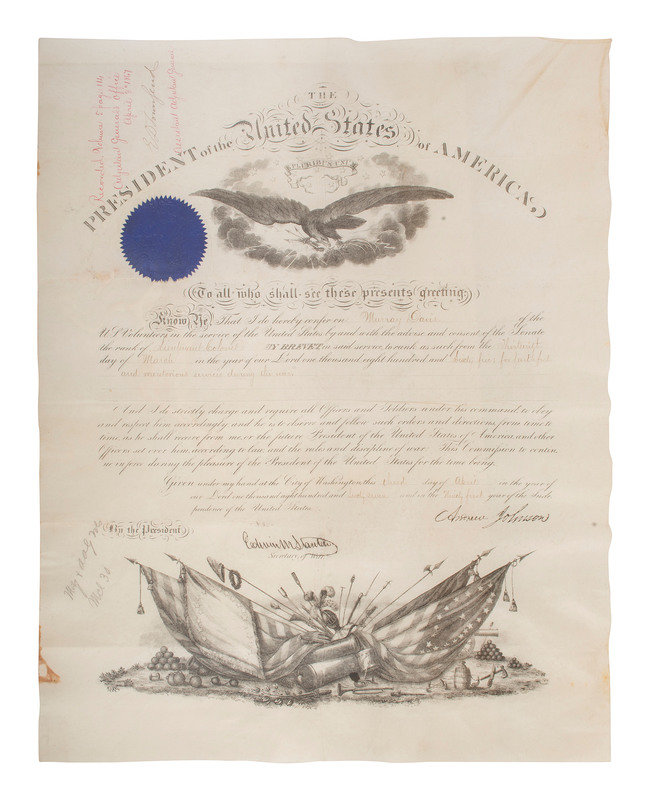 Recorded Volume 5 page 14
Adjutant General's Office
April 3rd 1867
Assistant Adjutant General
THE
PRESIDENT of the United States of AMERICA,
E PLURIBUS UNUM
To all who shall see these presents greeting:
Know Ye, That I do hereby confer on Murray Davis of the
U.S. Volunteers in the service of the United States by and with the advise and consent of the Senate
the rank of Lieutenant Colonel BY BREVET in said service, to rank as such from the thirteenth
day of March in the year of our Lord one thousand eight hundred and sixty five, for faithful
and meritorious services during the war.
And I do strictly charge and require all Officers and Soldiers under his command, to obey
and respect him accordingly: and he is to observe and follow such orders and directions, from time to
time, as he shall receive from me, or the future President of the United States of America, and other
Officers set over him, according to law, and the rules and discipline of war. This Commission to contin
ue in force during the pleasure of the President of the United States for the time being.
Given under my hand at the City of Washington this third day of April in the year of
our Lord one thousand eight hundred and sixty seven and in the Ninety first year of the Inde
pendence of the United States.
Andrew Johnson
By the President
Edwin M Stanton
Secretary of War.